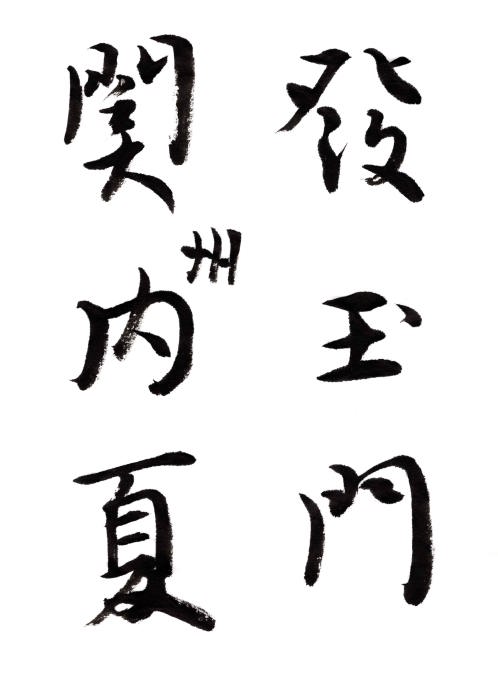 發玉門
関内夏
州